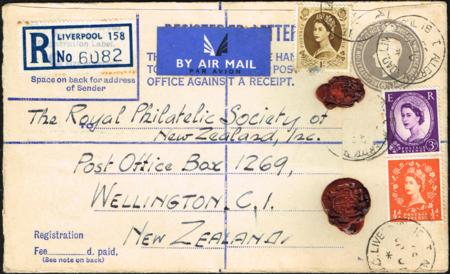 R
LIVERPOOL 158
No 6082
REGISTERED LETTER
BY AIR MAIL
PAR AVION
Space on back for address
of Sender
OFFICE AGAINST A RECEIPT.
The Royal Philatelic Society of
TO
New Zealand, Inc.
Post Office Box 1269,
WELLINGTON. C.1.
NEW ZEALAND.
E R
3D
½d
Registration
Fee d. paid,
(See note on back)